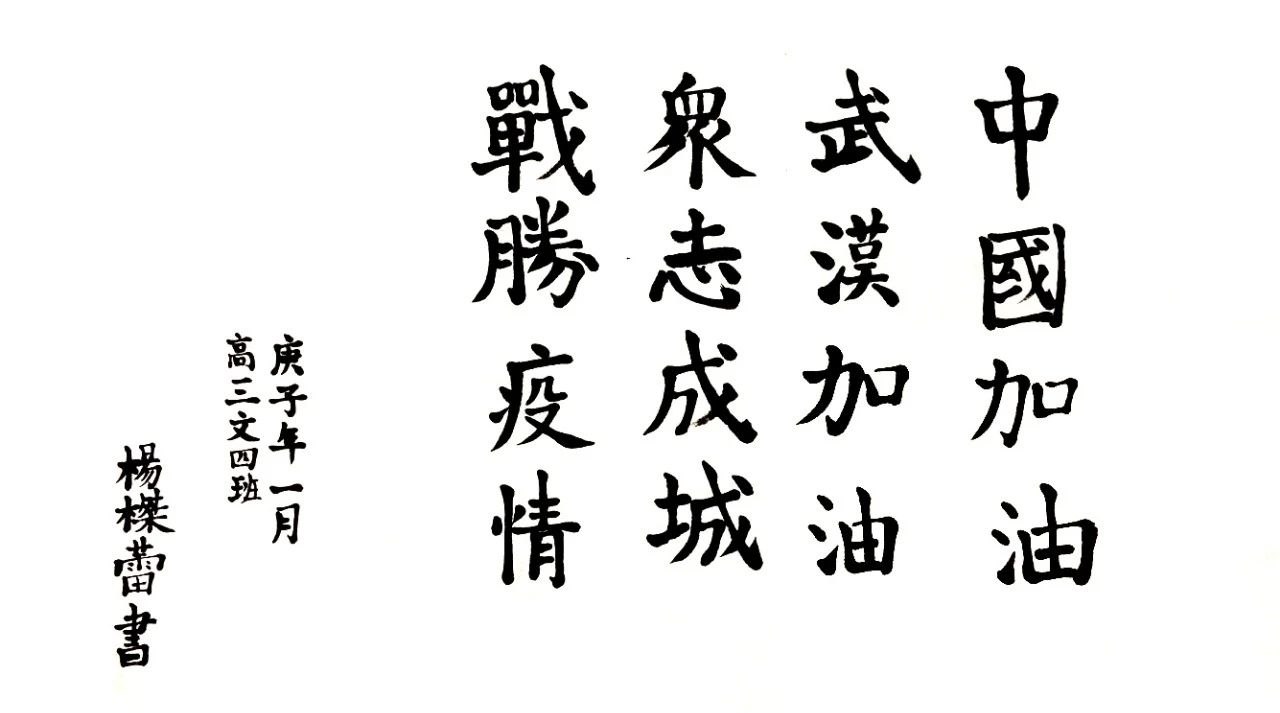 中國加油
武漢加油
衆志成城
戰勝疫情
庚子年一月
高三文四班
楊榤蕾書